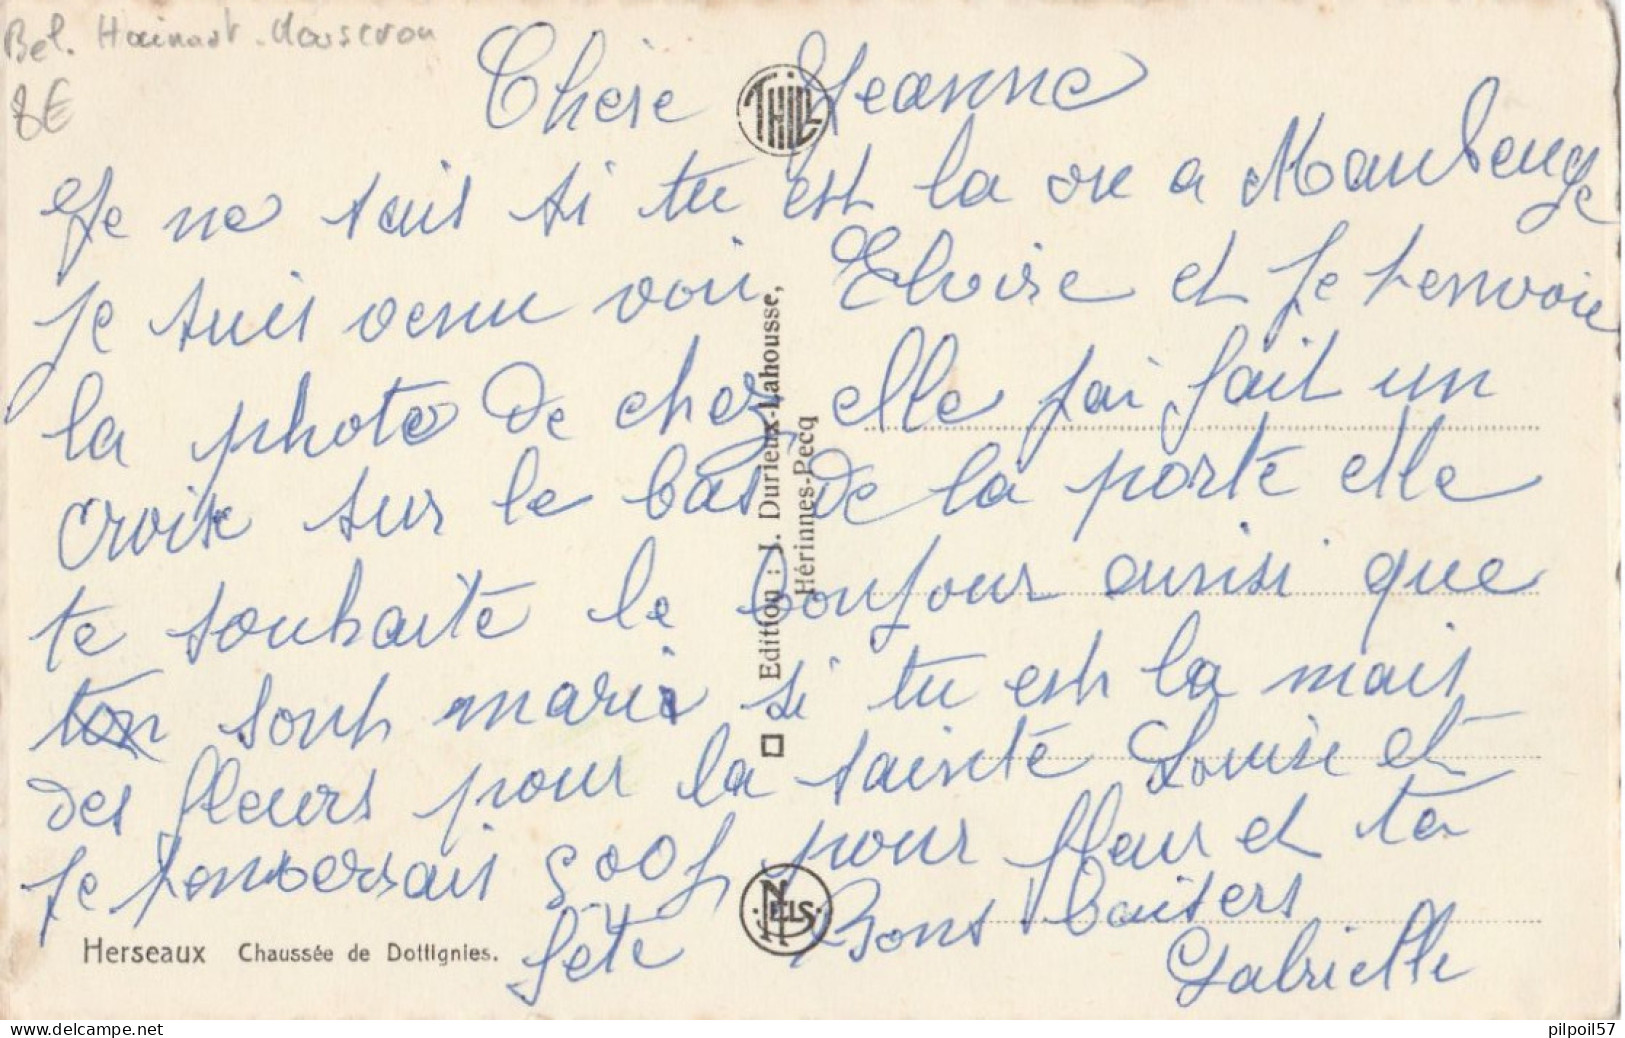 Bel. Hainaut. Mouscron
8€
Chère Jeanne
THILL
Je ne sait si tu est la ou a Maubeuge
je suis venu voir Eloise et je tenvoie
la photo de chez elle jai fait un
croix sur le bas de la porte elle
te souhaite le bonjour ainsi que
ton sont mari si tu est la mait
des fleurs pour la sainte Louise et
je tenverrait 500f pour fleur et ta
fête Bons baisers
Gabrielle
Edition : J. Durieux-Lahousse,
Hérinnes-Pecq
NELS
Herseaux Chaussée de Dottignies.
www.delcampe.net
pilpoil57